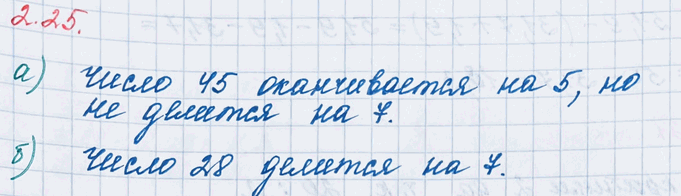 2.25.
а) Число 45 оканчивается на 5, но
не делится на 7.
б) Число 28 делится на 7.